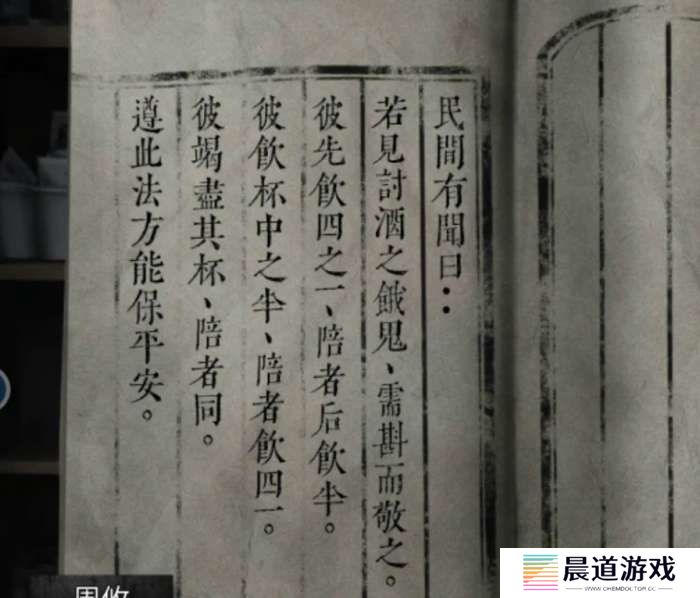 民間有聞曰：
若見討酒之餓鬼、需斟而敬之。
彼先飲四之一、陪者后飲半。
彼飲杯中之半、陪者飲四一。
彼竭盡其杯、陪者同。
遵此法方能保平安。
晨道游戏
WWW.CHEMDOLL.TOP.CC